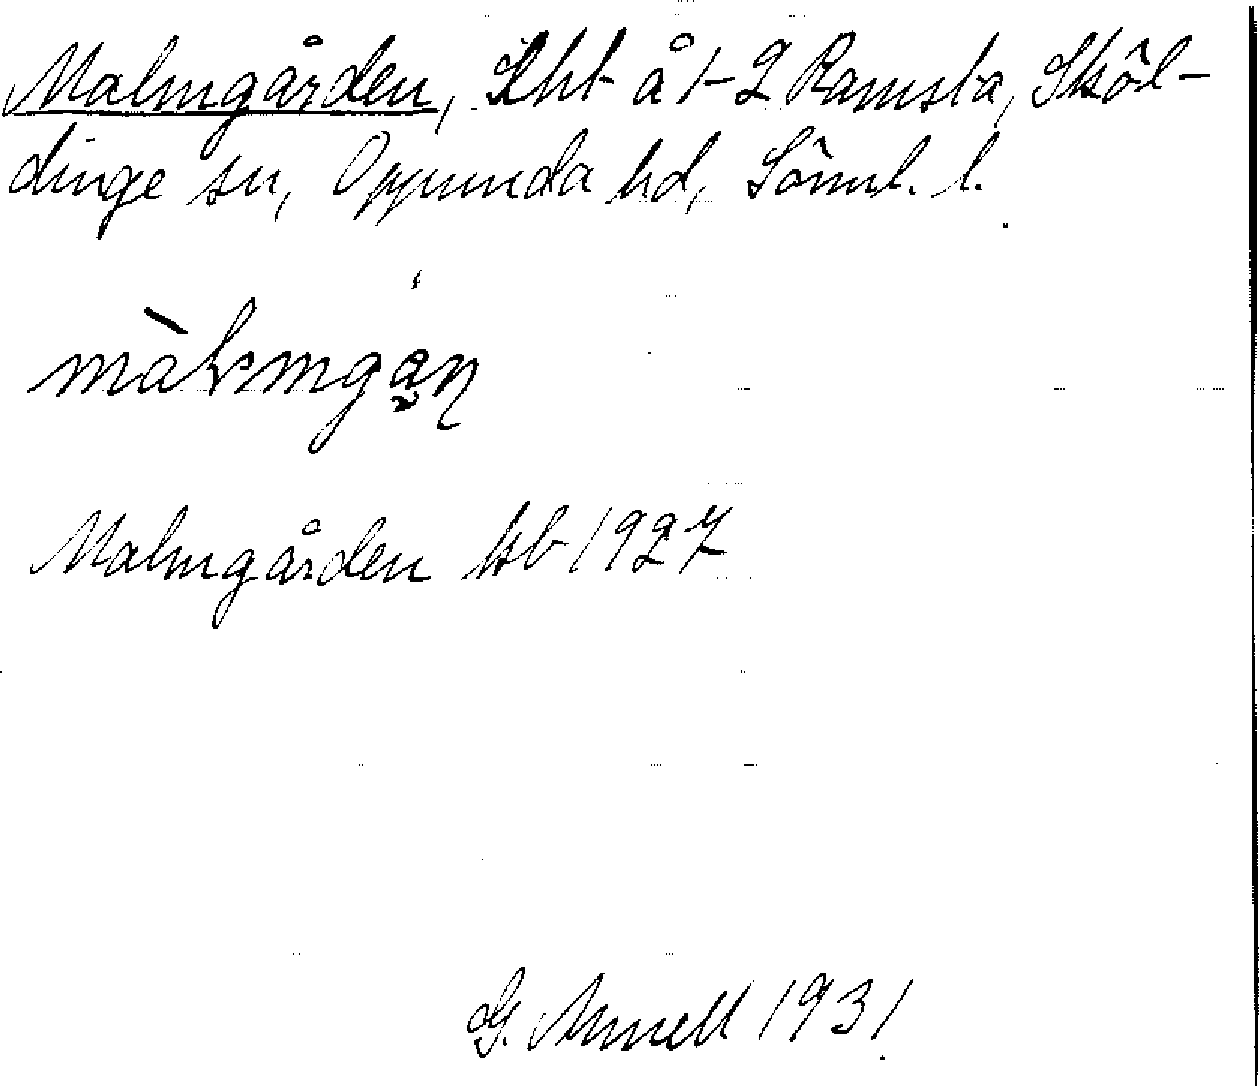 Malmgården, Lht å 1-2 Ramsta, Sköl-
dinge sn, Oppunda hd, Söml. l.
màlmgạ̊ṇ
Malmgården kb 1927
G. Annell 1931